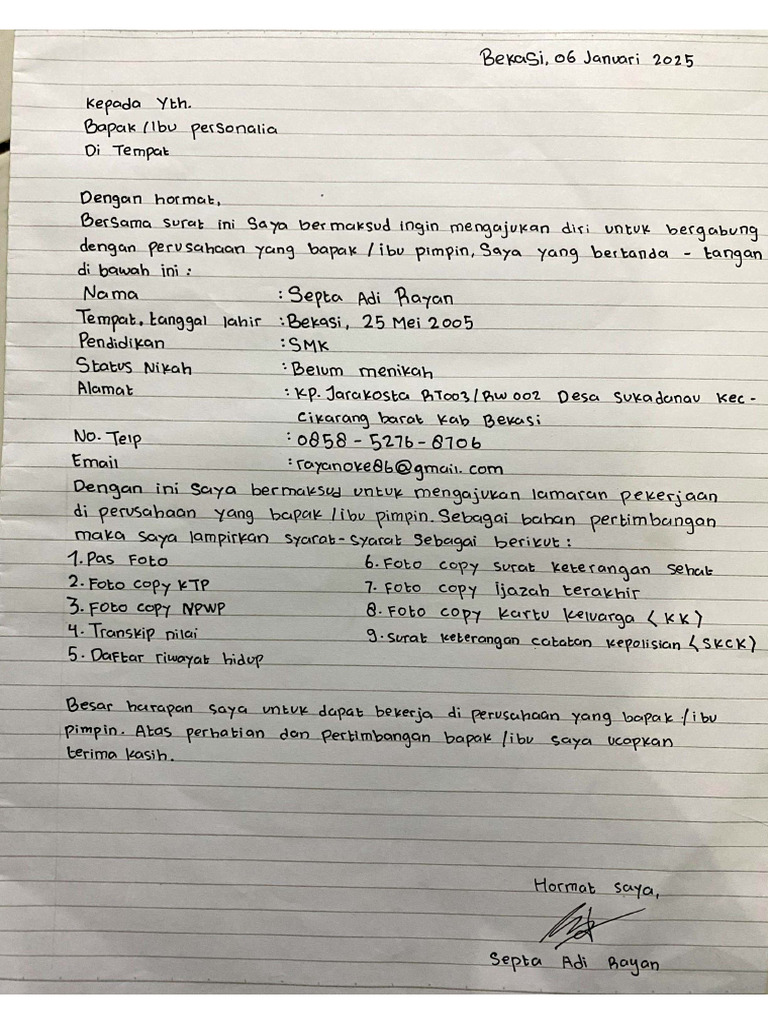 Bekasi, 06 Januari 2025
Kepada Yth.
Bapak/Ibu personalia
Di Tempat
Dengan hormat,
Bersama surat ini Saya bermaksud ingin mengajukan diri untuk bergabung
dengan perusahaan yang bapak/ibu pimpin, Saya yang bertanda-tangan
di bawah ini :
Nama : Septa Adi Rayan
Tempat, tanggal lahir : Bekasi, 25 Mei 2005
Pendidikan : SMK
Status Nikah : Belum menikah
Alamat : KP. Jarakosta RT003/RW002 Desa Sukadanau Kec-
Cikarang barat Kab Bekasi
No. Telp : 0858-5276-8706
Email : rayanoke86@gmail.com
Dengan ini Saya bermaksud untuk mengajukan lamaran pekerjaan
di perusahaan yang bapak/ibu pimpin. Sebagai bahan pertimbangan
maka saya lampirkan syarat-syarat sebagai berikut :
1. Pas Foto
2. Foto copy KTP
3. Foto copy NPWP
4. Transkip nilai
5. Daftar riwayat hidup
6. Foto copy surat keterangan sehat
7. Foto copy ijazah terakhir
8. Foto copy kartu keluarga (KK)
9. Surat keterangan catatan kepolisian (SKCK)
Besar harapan saya untuk dapat bekerja di perusahaan yang bapak/ibu
pimpin. Atas perhatian dan pertimbangan bapak/ibu saya ucapkan
terima kasih.
Hormat saya,
Septa Adi Rayan